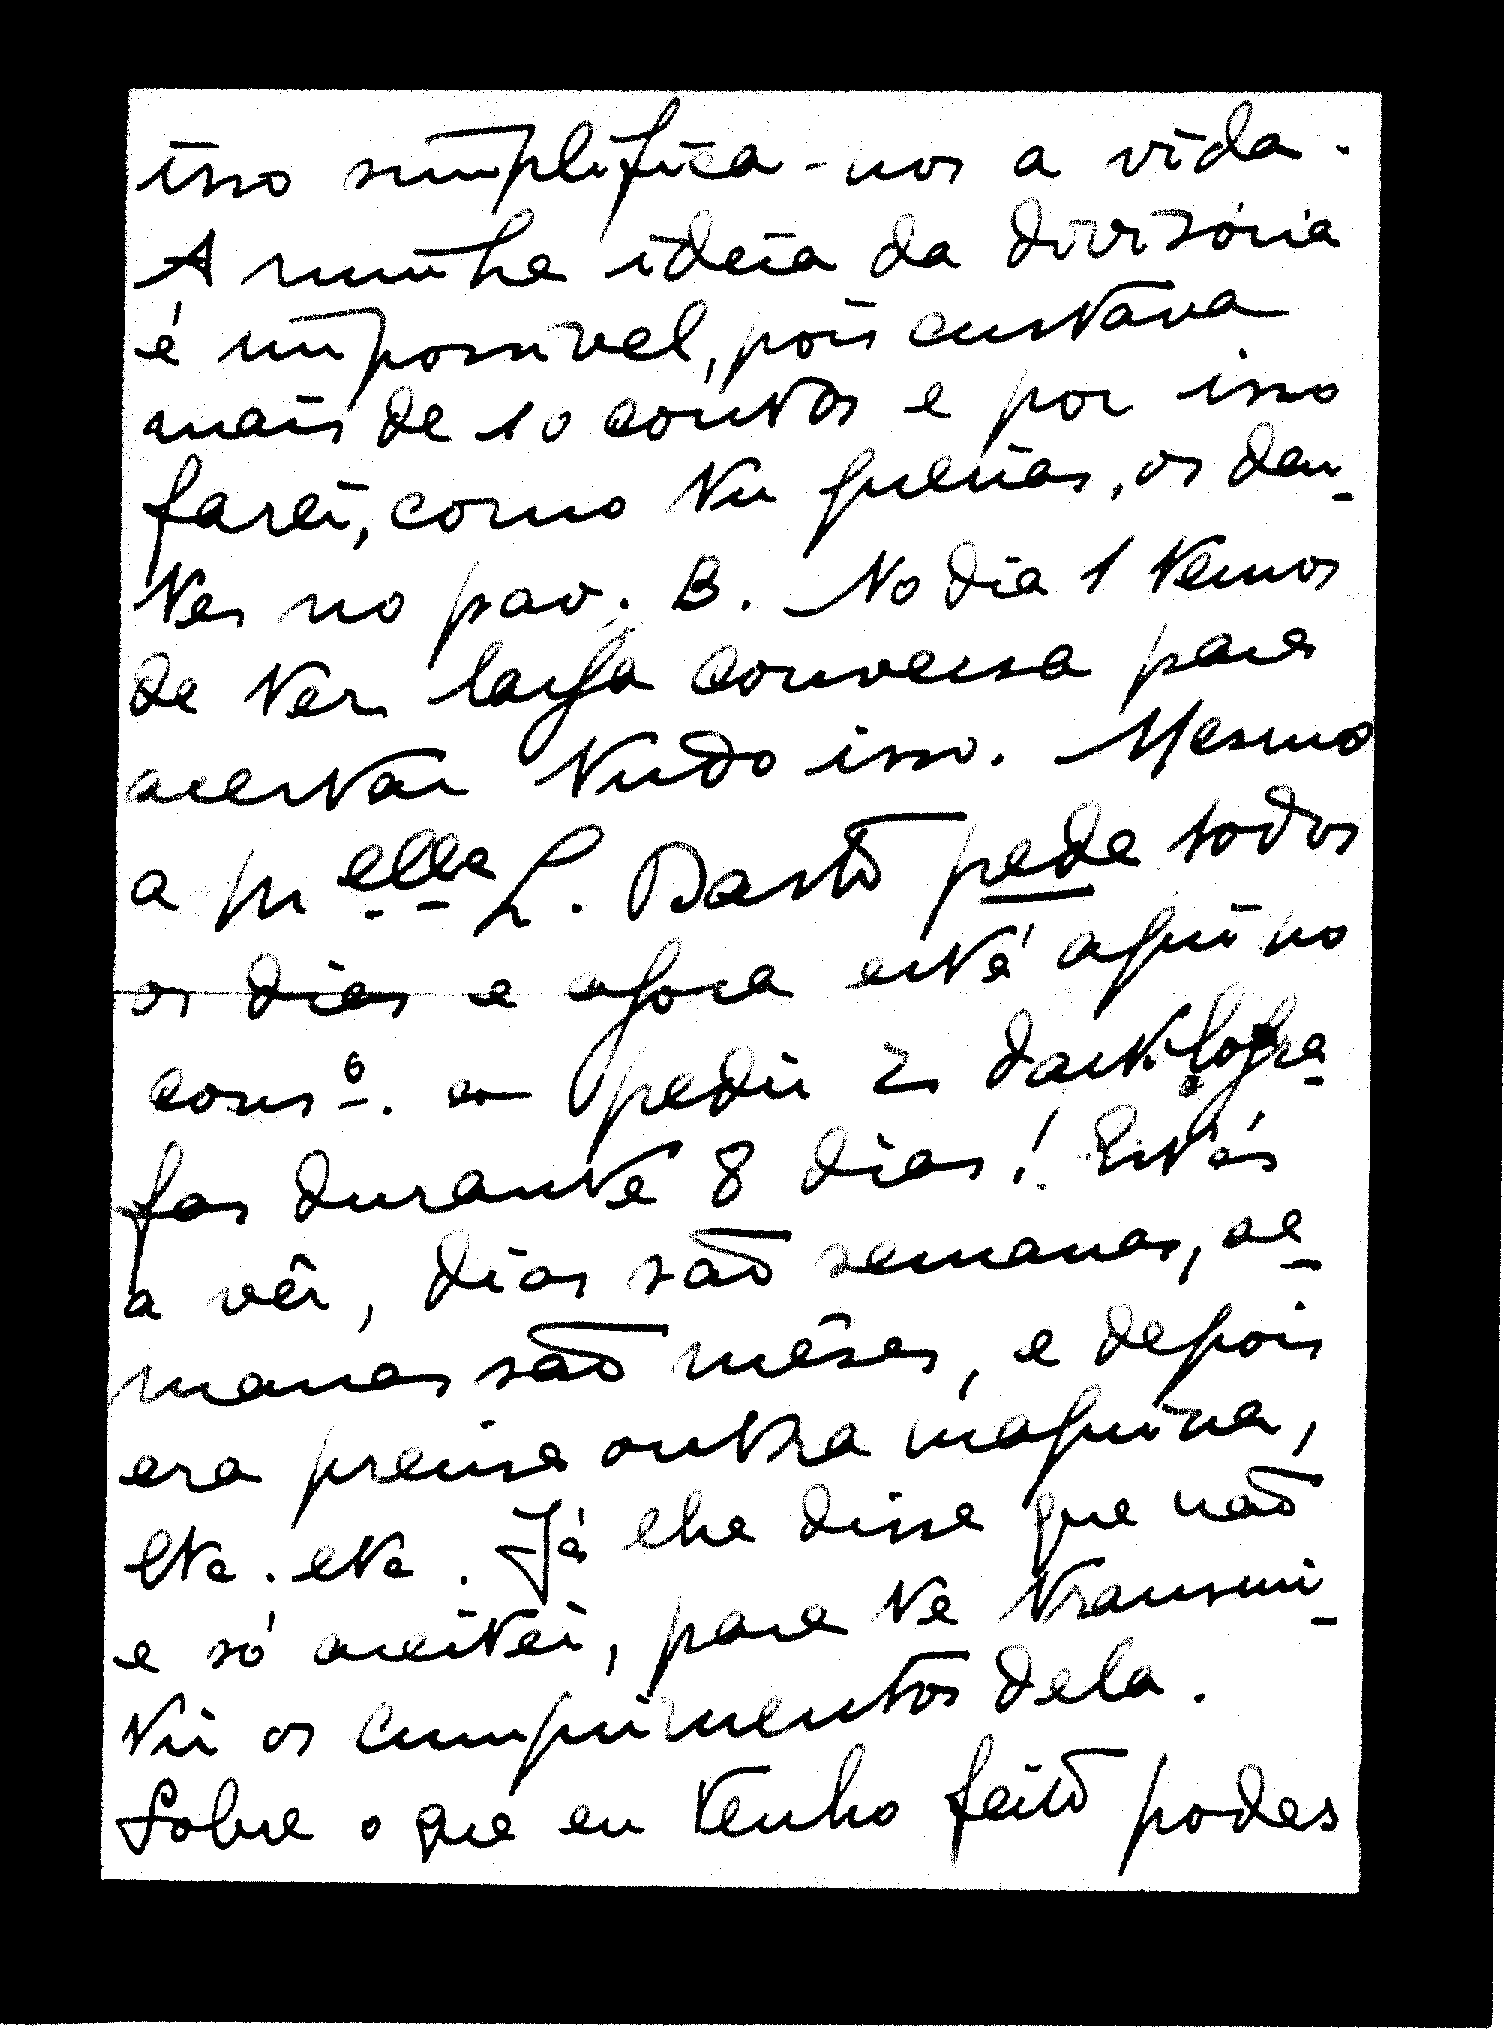 isso simplifica-nos a vida.
A minha ideia da divisória
é impossivel, pois custava
mais de 10 contos e por isso
farei, como tu querias, os den-
tes no pav. B. No dia 1 temos
de ter larga conversa para
acertar tudo isso. Mesmo
a Melle L. Basto pede todos
os dias e agora está aqui no
consº. a pedir 2 dactilogra-
fas durante 8 dias! Estás
a vêr, dias são semanas, se-
manas são mêses, e depois
era precisa outra maquina,
etc. etc. Já lhe disse que não
e só aceitei, para te transmi-
tir os cumprimentos dela.
Sobre o que eu tenho feito podes